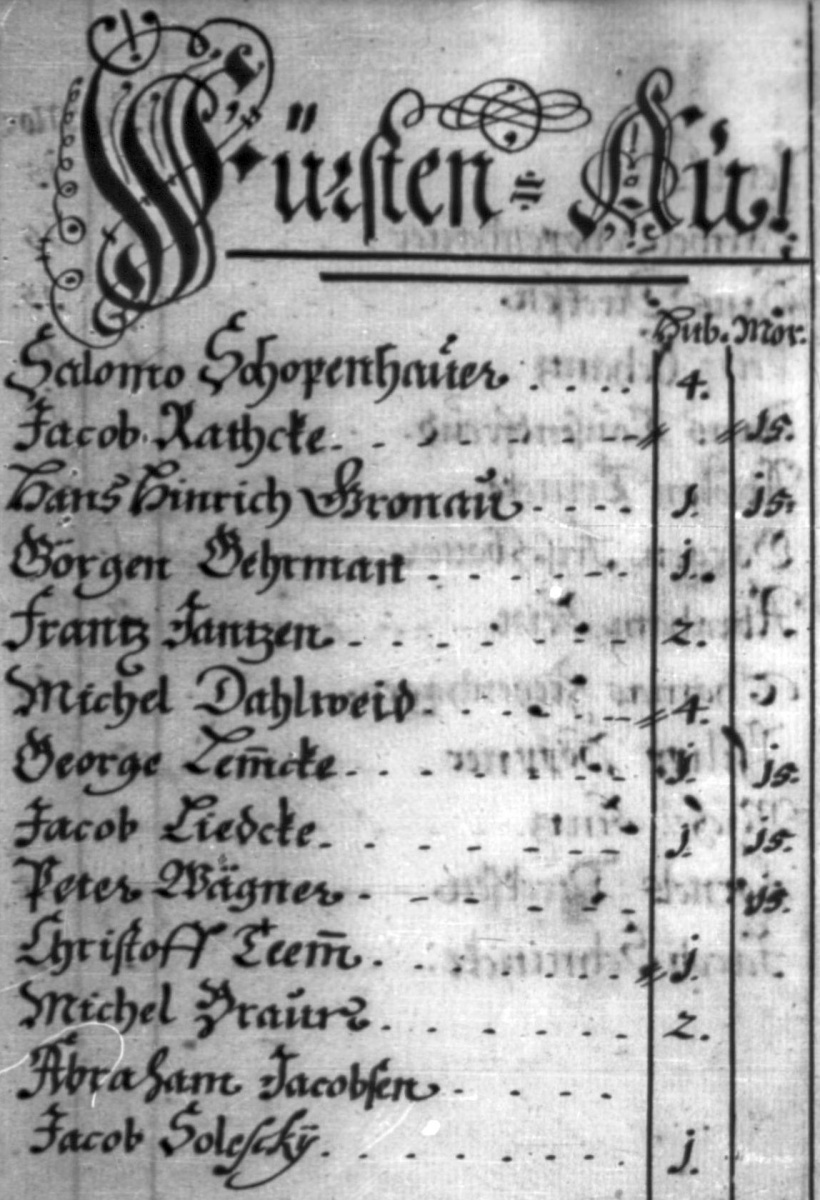 Fürsten = Au!
Hub. Mor.
Salomo Schopenhauer . . . . 4.
Jacob Rathcke - - - - - - - 15.
Hans Hinrich Gronau . . . . 1. 15.
Görgen Gehrman . . . . . 1.
Frantz Jantzen . . . . . . 2.
Michel Dahlweid . . . . . 4.
George Lem̄cke . . . . . . 1. 15.
Jacob Liedcke . . . . . . 1. 15.
Peter Wägner . . . . . 15.
Christoff Teem̄ . . . . . . 1.
Michel . . . . . . 2.
Abraham Jacobsen . . . .
Jacob Solesckÿ . . . . . . . 1.